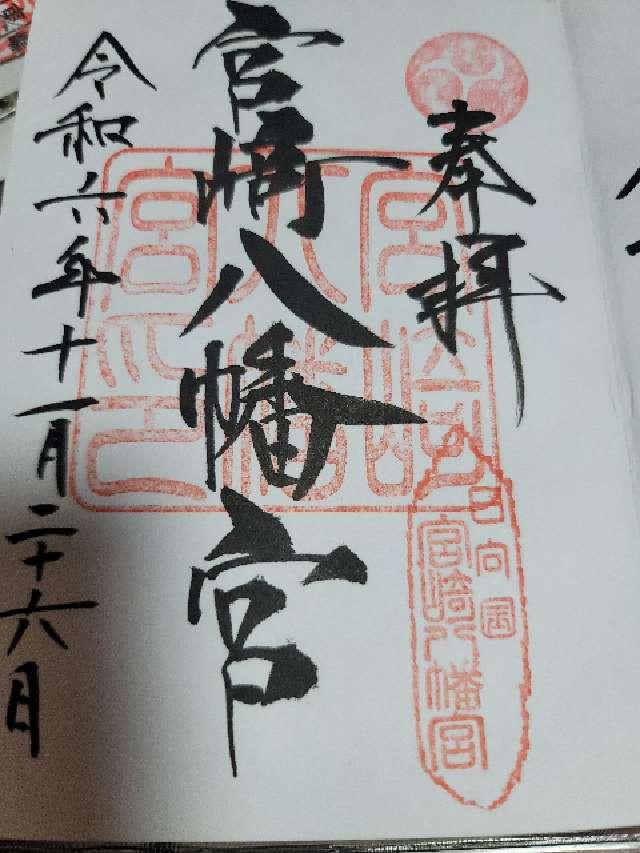 奉拝
日向国
宮崎八幡宮
宮崎八幡宮印
宮崎八幡宮
令和六年十一月二十六月